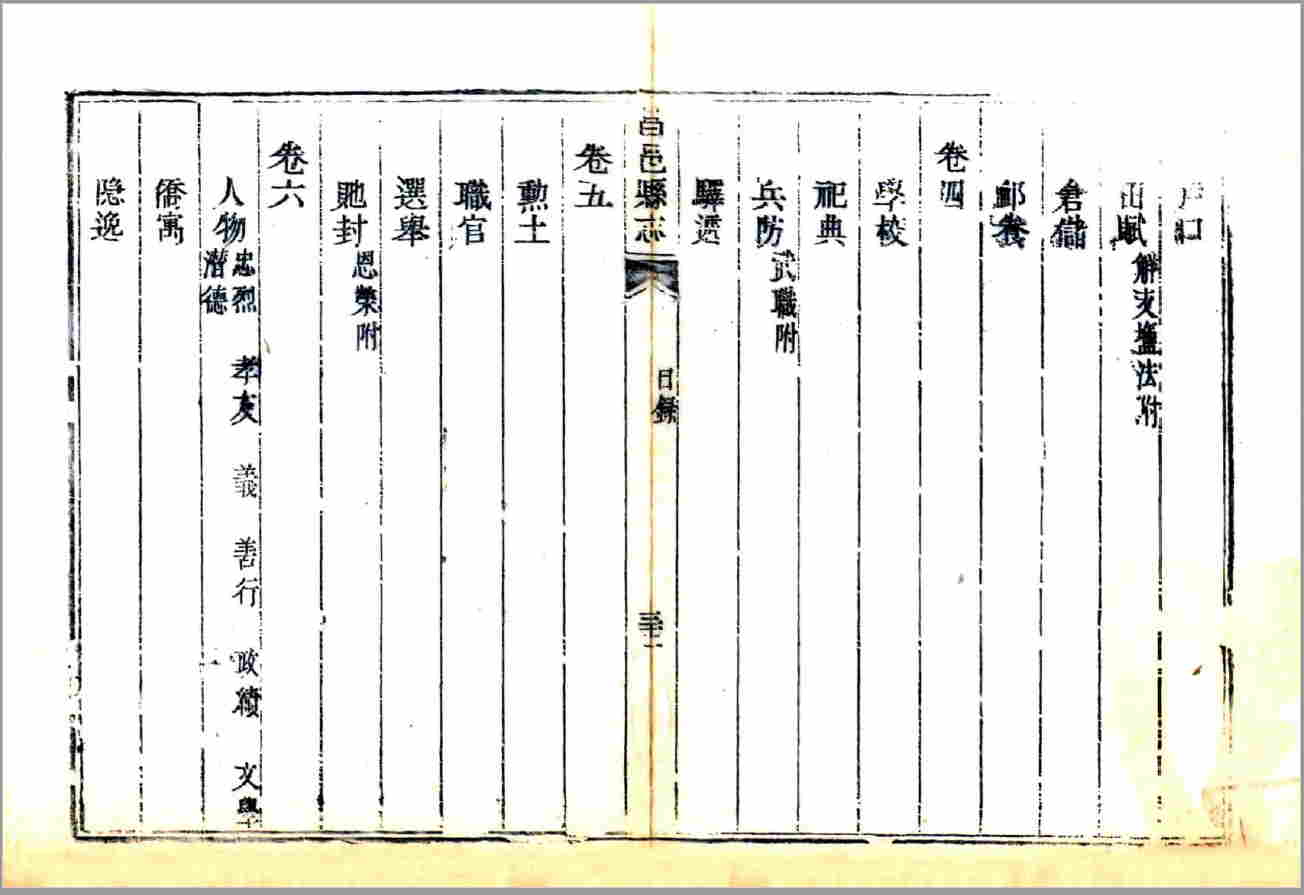 戶口
田賦 解支鹽法附
倉儲
養
卷四
學校
祀典
兵防 武職附
驛遞
昌邑縣志 目錄
卷五
勲土
職官
選舉
貤封 恩榮附
卷六
人物 忠烈 孝友 義 善行 政績 文學
潛德
僑寓
隱逸